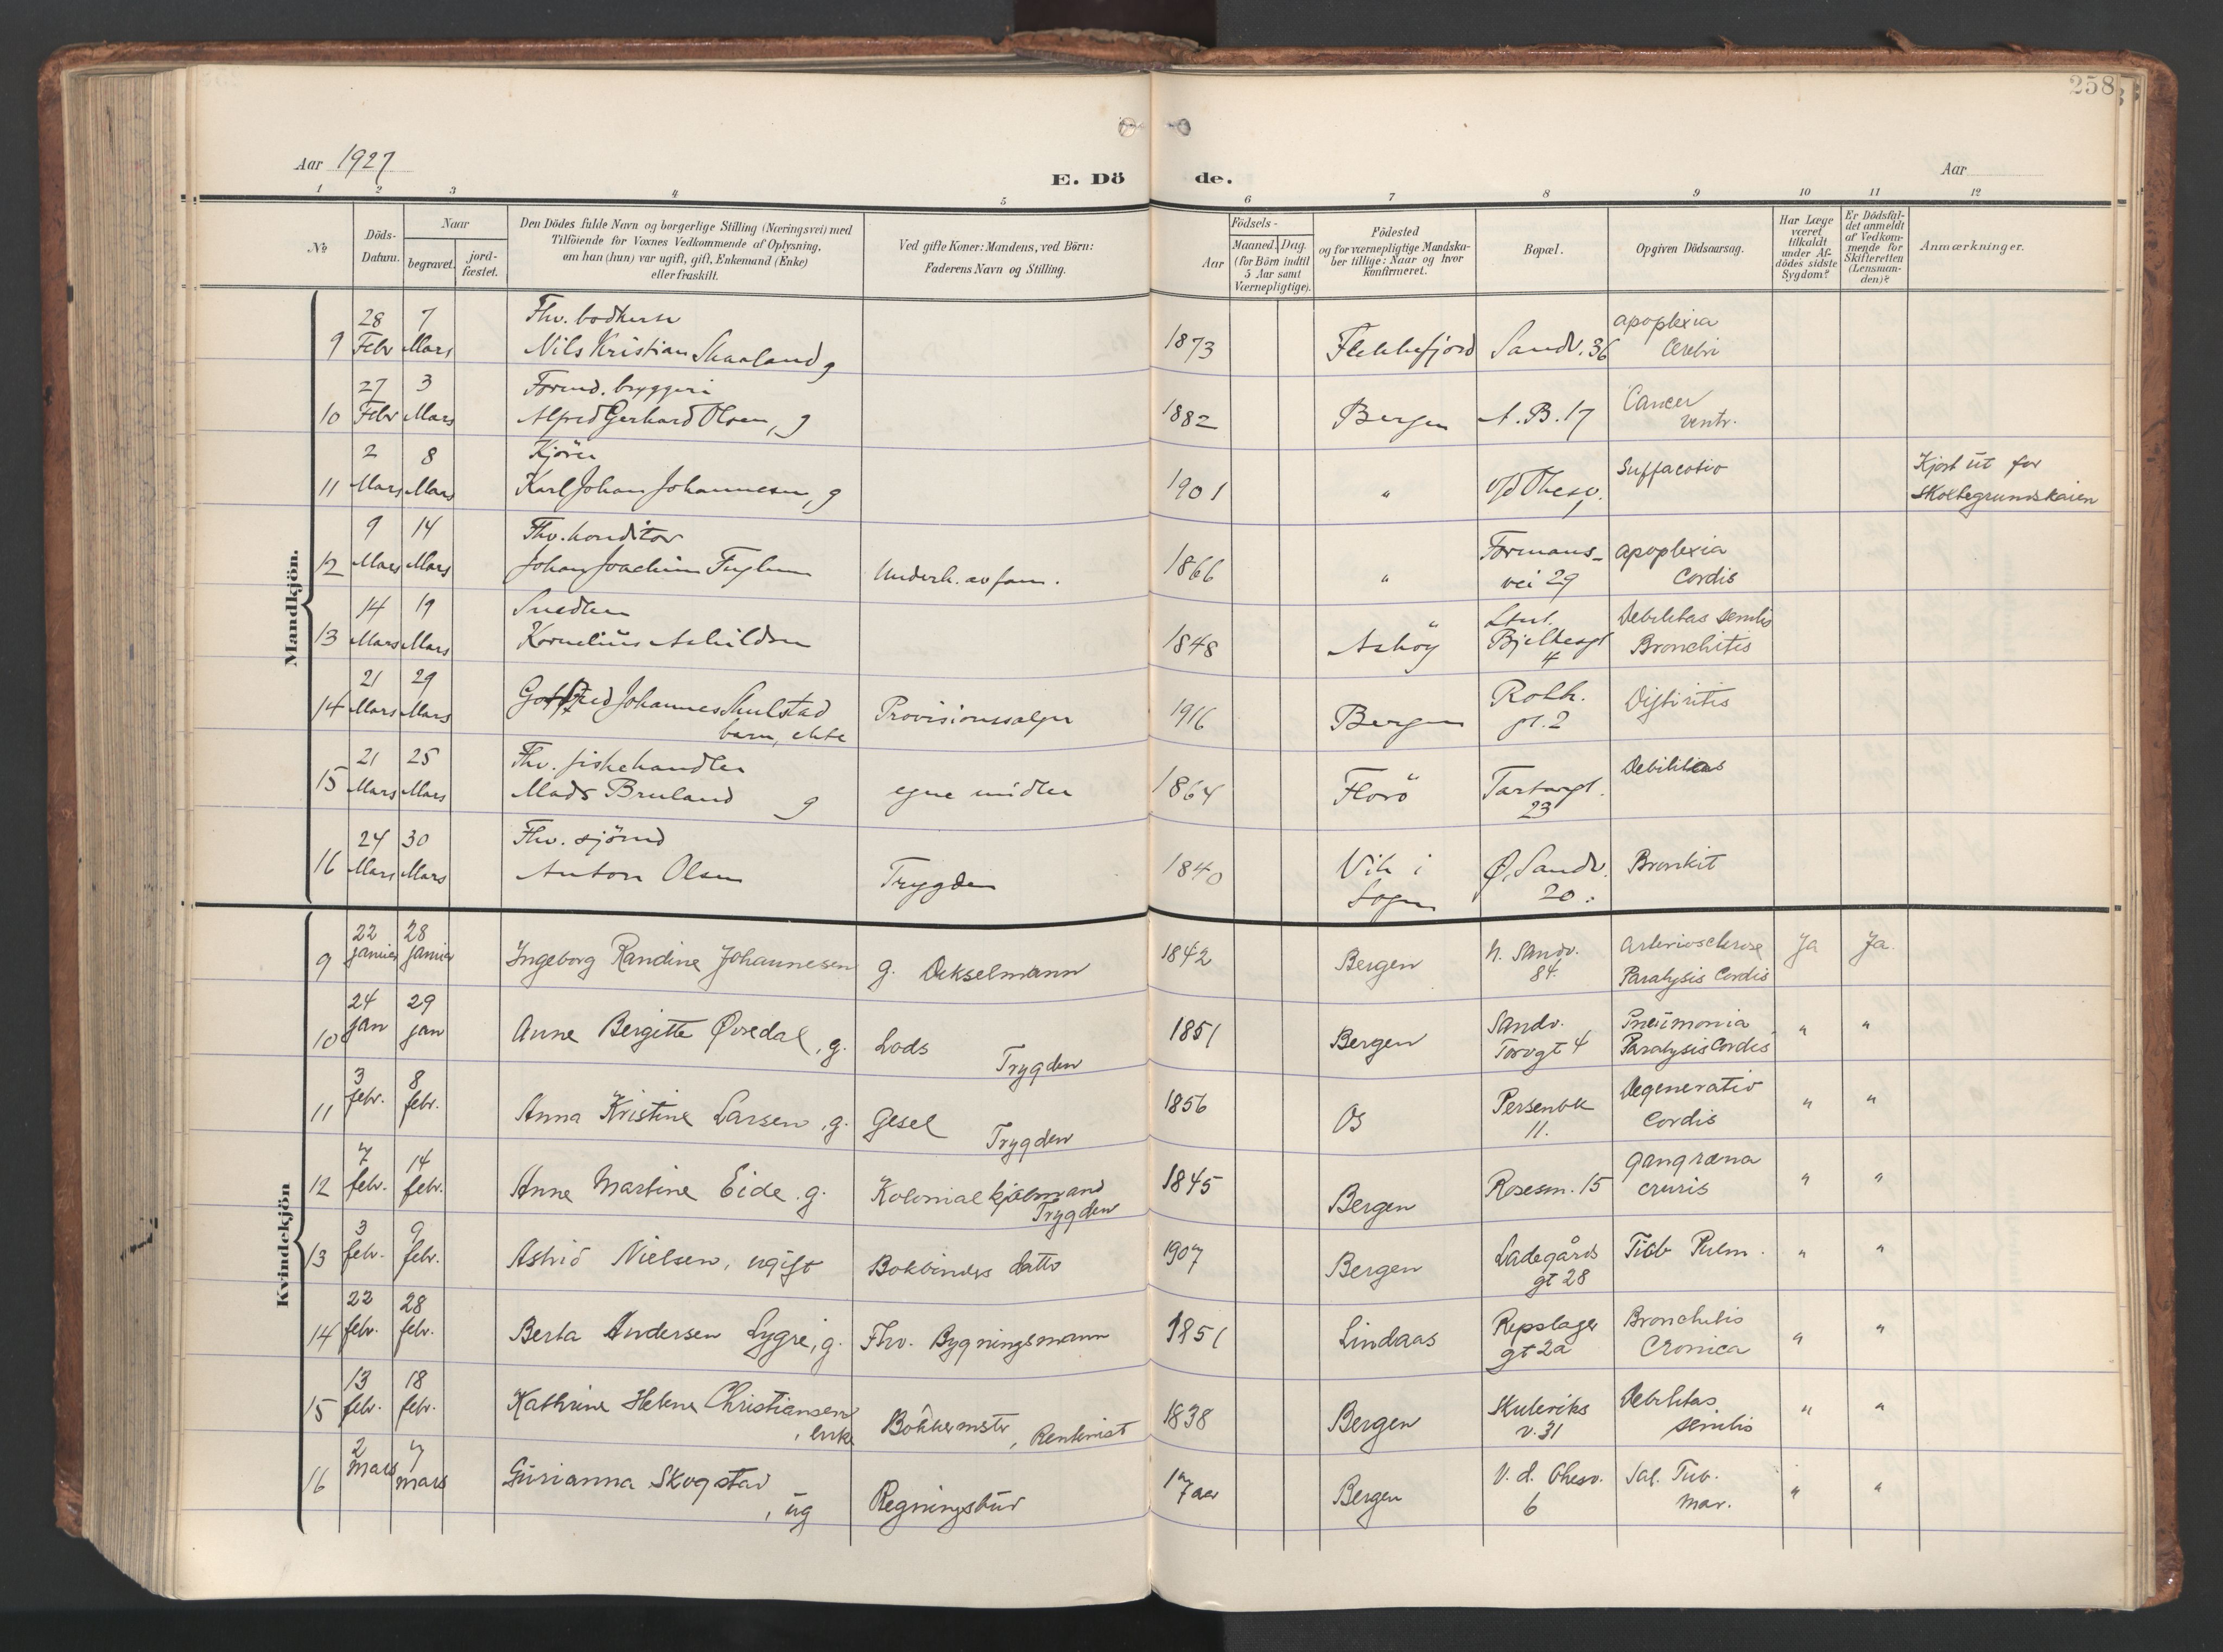 258
Aar 1927
E. Dö de.
Aar
1 2 3 4 5 6 7 8 9 10 11 12
No
Döds-Datum.
Naar
begravet.
jord-fæstet.
Den Dödes fulde Navn og borgerlige Stilling (Næringsvei) med
Tilföiende for Voxnes Vedkommende af Oplysning,
om han (hun) var ugift, gift, Enkemand (Enke)
eller fraskilt.
Ved gifte Koner: Mandens, ved Börn:
Faderens Navn og Stilling.
Födsels-
Aar
Maaned. Dag.
(for Börn indtil
5 Aar samt
Værnepligtige).
Födested
og for værnepligtige Mandska-
ber tillige: Naar og hvor
Konfirmeret.
Bopæl.
Opgiven Dödsaarsag.
Har Læge
været
tilkaldt
under Af-
dödes sidste
Sygdom?
Er Dödsfal-
det anmeldt
af Vedkom-
mende for
Skifteretten
(Lensman-
den)?
Anmærkninger.
Mandkjön.
28 7 Fhv. bødker apoplexia
9 Febr Mars Nils Kristian Skaaland g 1873 Flekkefjord Sandv. 36 Cerebri
27 3 Formd. bryggeri Cancer
10 Febr Mars Alfred Gerhard Olsen, g 1882 Bergen A. B. 17 ventr.
2 8 Kjörer Suffacatio Kjørt ut for
11 Mars Mars Karl Johan Johannesen, g 1901 " v/d Ohesv. Skoltegrundskaien
9 14 Fhv. konditor Formans- apoplexia
12 Mars Mars Johan Joachim Fuglum Underh. av fam. 1866 " vei 29 Cordis
14 19 Snedker Debilitas senilis
13 Mars Mars Kornelius Askildsen 1848 Askøy Bjelkesgt 4 Bronchitis
21 29
14 Mars Mars Gotfred Johannes Skulstad Provisionsselger 1916 Bergen Rothh. pl. 2 Difteritis
barn, ekte
21 25 Fhv. fiskehandler
15 Mars Mars Mads Bruland g egne midler 1864 Florö Tartargt. 23 Debilitas
24 30 Fhv. sjömd
16 Mars Mars Anton Olsen Trygden 1840 Vik i Sogn Ø. Sandv. 20. Bronkit
Kvindekjön
22 28
9 januar januar Ingeborg Randine Johannesen g. Dekselmann 1842 Bergen N. Sandv. 84. Arteriosclerose Paralysis Cordis Ja Ja
24 29
10 jan jan Anne Bergitte Øvredal, g. Lods Trygden 1851 Bergen Sandv. Torvgt 4 Pneumonia Paralysis Cordis " "
3 8
11 febr. febr. Anna Kristine Larsen, g. Gesel Trygden 1856 Os Persenbk 11. Degeneratio Cordis " "
7 14
12 febr. febr. Anne Martine Eide. g. Kolonialkjøbmand Trygden 1845 Bergen Rosesm. 15 Gangræna cruris " "
3 9
13 febr. febr. Astrid Nielsen, ugift Bokbinders datter 1907 Bergen Ladegårds gt 28 Tub Pulm. " "
22 28
14 febr. febr. Berta Andersen Lygre, g. Fhv. Bygningsmann 1851 Lindaas Repslager gt 2a Bronchitis Cronica " "
13 18
15 febr. febr. Kathrine Helene Christiansen, enke Bökkermstr, Rentenist 1838 Bergen Skuteviks v. 31 Debilitas senilis " "
2 7
16 mars mars Gurianna Skogstad, ug Regningsbud 17 aar Bergen V. d. Ohesv. 6 Sal. Tub. Mar. " "